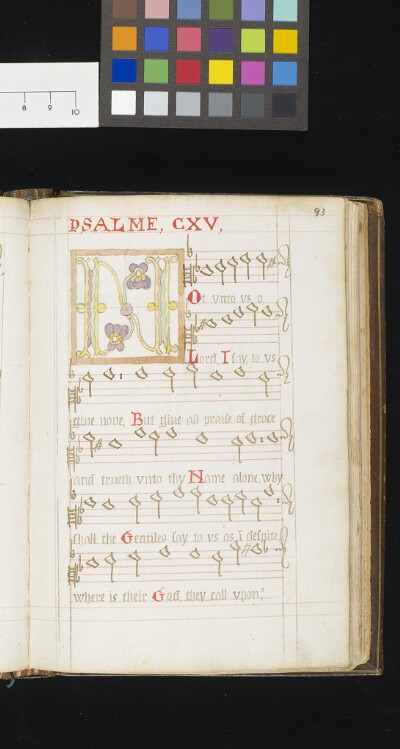 8 9 10
93
PSALME, CXV,
NOt vnto vs o
Lord, I say to vs
giue none, But giue all praise of grace
and trueth vnto thy Name alone, why
shall the Gentiles say to vs as ī despite,
where is their God they call vpon?